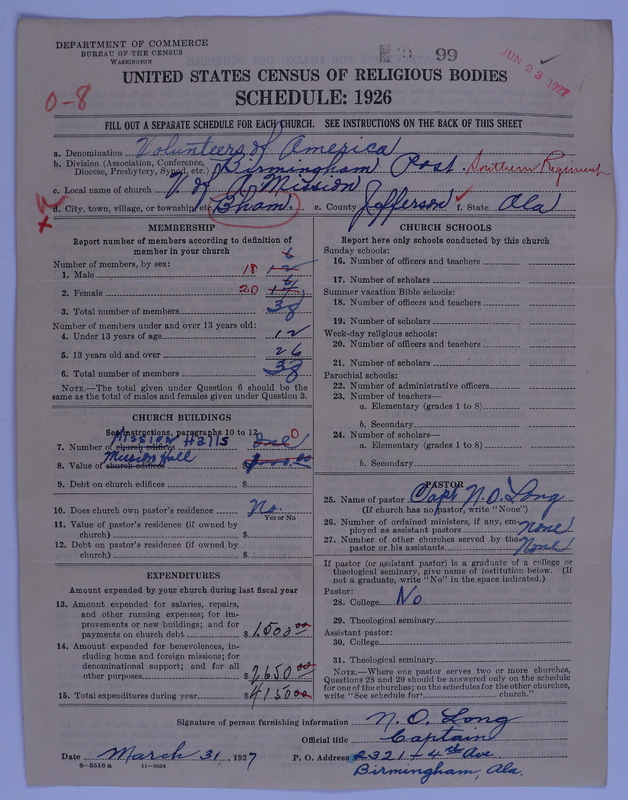 DEPARTMENT OF COMMERCE
BUREAU OF THE CENSUS
WASHINGTON
99
JUN 23 1927
UNITED STATES CENSUS OF RELIGIOUS BODIES
SCHEDULE: 1926
0-8
FILL OUT A SEPARATE SCHEDULE FOR EACH CHURCH. SEE INSTRUCTIONS ON THE BACK OF THIS SHEET
a. Denomination Volunteers of America
b. Division (Association, Conference, Diocese, Presbytery, Synod, etc.) Birmingham Post Southern Regiment
c. Local name of church V. of A Mission
d. City, town, village, or township, etc. Bham. e. County Jefferson f. State Ala
MEMBERSHIP
Report number of members according to definition of
member in your church
Number of members, by sex:
1. Male 18
2. Female 20
3. Total number of members 38
Number of members under and over 13 years old:
4. Under 13 years of age 12
5. 13 years old and over 26
6. Total number of members 38
NOTE.—The total given under Question 6 should be
the same as the total of males and females given under Question 3.
CHURCH BUILDINGS
See instructions, paragraphs 10 to 12
Mission Halls
7. Number of church edifices One 0
Mission Hall
8. Value of church edifices $
9. Debt on church edifices $
10. Does church own pastor's residence No.
Yes or No
11. Value of pastor's residence (if owned by
church) $
12. Debt on pastor's residence (if owned by
church) $
EXPENDITURES
Amount expended by your church during last fiscal year
13. Amount expended for salaries, repairs,
and other running expenses; for im-
provements or new buildings; and for
payments on church debt $1,500 00
14. Amount expended for benevolences, in-
cluding home and foreign missions; for
denominational support; and for all
other purposes $2650 00
15. Total expenditures during year $4150 00
CHURCH SCHOOLS
Report here only schools conducted by this church
Sunday schools:
16. Number of officers and teachers
17. Number of scholars
Summer vacation Bible schools:
18. Number of officers and teachers
19. Number of scholars
Week-day religious schools:
20. Number of officers and teachers
21. Number of scholars
Parochial schools:
22. Number of administrative officers
23. Number of teachers—
a. Elementary (grades 1 to 8)
b. Secondary
24. Number of scholars—
a. Elementary (grades 1 to 8)
b. Secondary
PASTOR
25. Name of pastor Capt N. O. Long
(If church has no pastor, write "None")
26. Number of ordained ministers, if any, em-
ployed as assistant pastors none
27. Number of other churches served by the
pastor or his assistants None
If pastor (or assistant pastor) is a graduate of a college or
theological seminary, give name of institution below. (If
not a graduate, write "No" in the space indicated.)
Pastor:
28. College No
29. Theological seminary
Assistant pastor:
30. College
31. Theological seminary
NOTE.—Where one pastor serves two or more churches,
Questions 28 and 29 should be answered only on the schedule
for one of the churches; on the schedules for the other churches,
write "See schedule for church."
Signature of person furnishing information N. O. Long
Official title Captain
Date March 31, 1927 P. O. Address 2321-4th Ave
8-5518 a Birmingham, Ala.